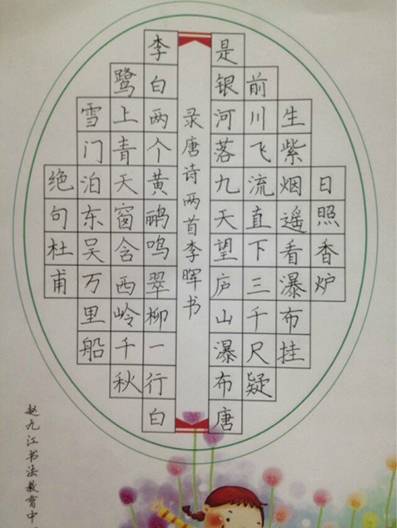 日照香炉
生紫烟遥看瀑布挂
前川飞流直下三千尺疑
是银河落九天望庐山瀑布唐
录唐诗两首李晖书
李白两个黄鹂鸣翠柳一行白
鹭上青天窗含西岭千秋
雪门泊东吴万里船
绝句杜甫
赵九江书法教育中